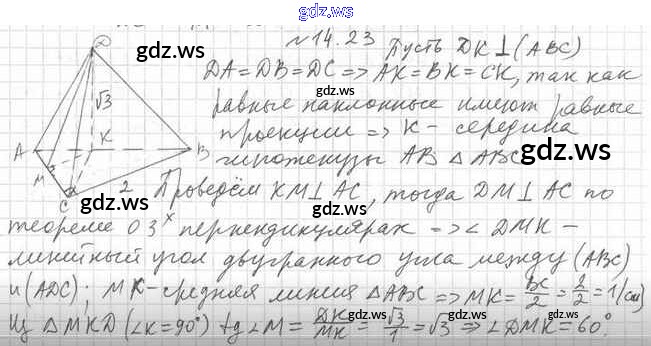 gdz.ws
gdz.ws
№14.23 Пусть DK⊥(ABC)
DA=DB=DC=>AK=BK=CK, так как
равные наклонные имеют равные
проекции => K- середина
гипотенузы AB △ABC
gdz.ws
gdz.ws
gdz.ws
D
√3
A
K
B
M
C
2
Проведём KM⊥AC, тогда DM⊥AC по
теореме о 3х перпендикулярах => ∠DMK –
линейный угол двугранного угла между (ABC)
и (ADC); MK-средняя линия △ABC => MK= BC/2 = 2/2 =1(см)
Из △MKD (∠K=90°) tg∠M= DK/MK = √3/1 =√3 => ∠DMK=60°.
gdz.ws
gdz.ws